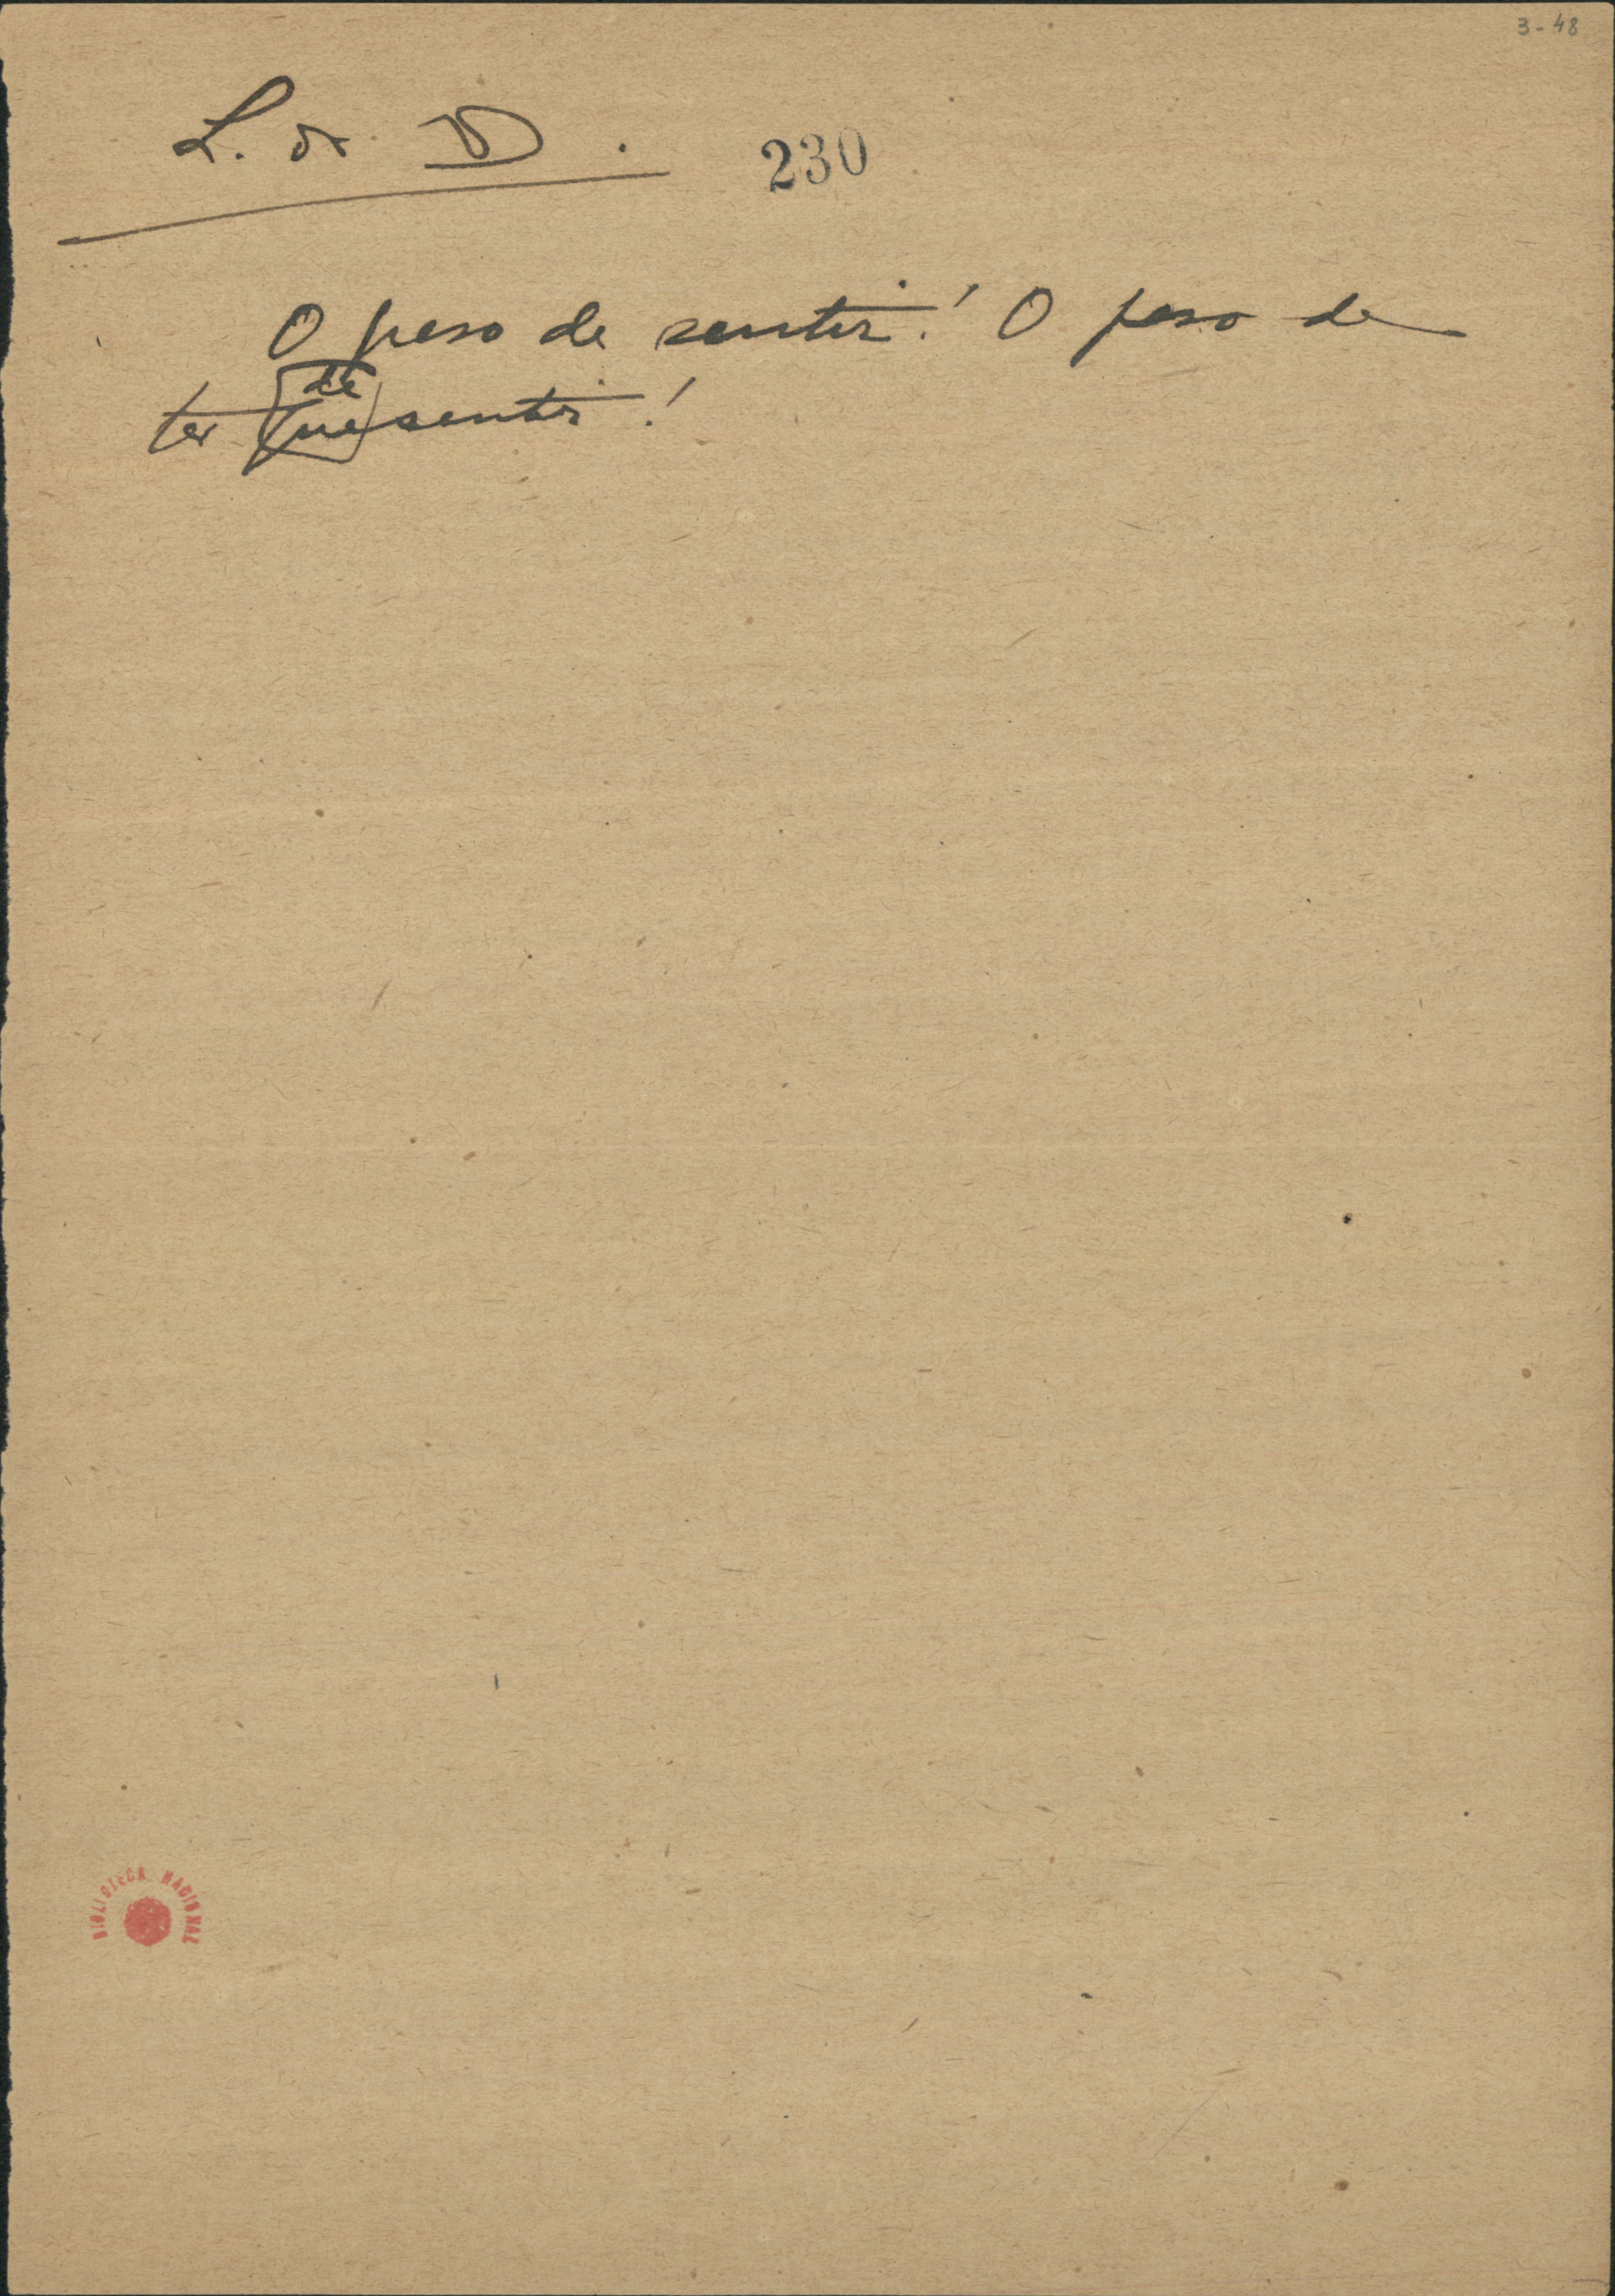 3-48
L. do D.
230
O peso de sentir! O peso de
de
ter que sentir!
BIBLIOTECA NACIONAL